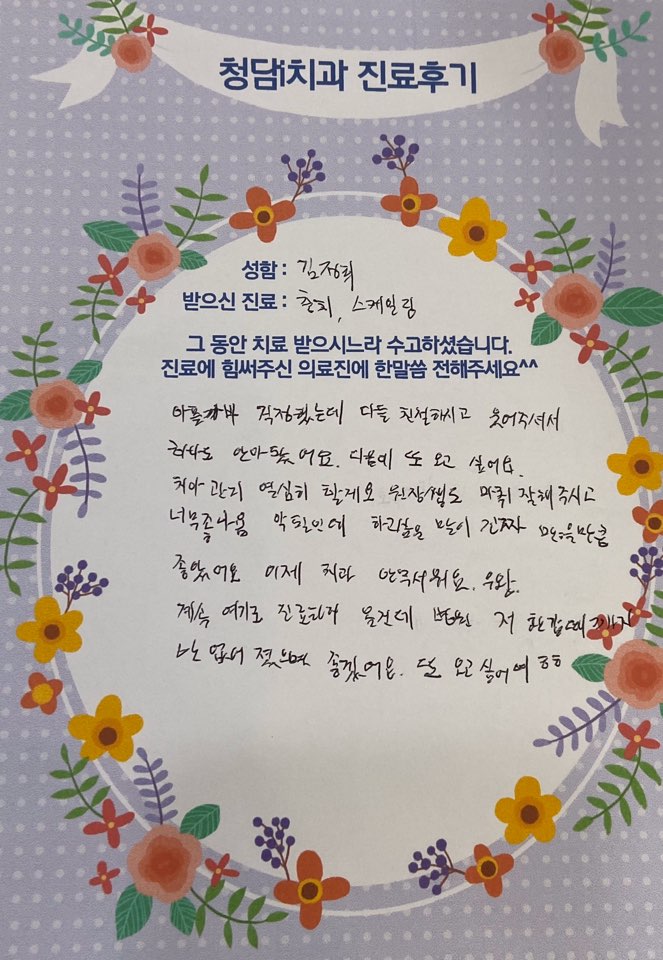 청담i치과 진료후기
성함 : 김정희
받으신 진료 : 충치, 스케일링
그 동안 치료 받으시느라 수고하셨습니다.
진료에 힘써주신 의료진에 한말씀 전해주세요^^
아플까봐 걱정했는데 다들 친절하시고 웃어주셔서
하나도 안아팠어요. 다음에 또 오고 싶어요.
치아 관리 열심히 할게요 원장쌤도 마취 잘해주시고
너무 좋나옴 말이 진짜 만큼
좋았어요 이제 치과 안무서워요. 우와.
계속 여기로 진료하러 올건데 병원 저 환갑때까지
안 없어 졌으면 좋겠어요. 또 오고 싶어여 ㅎㅎ